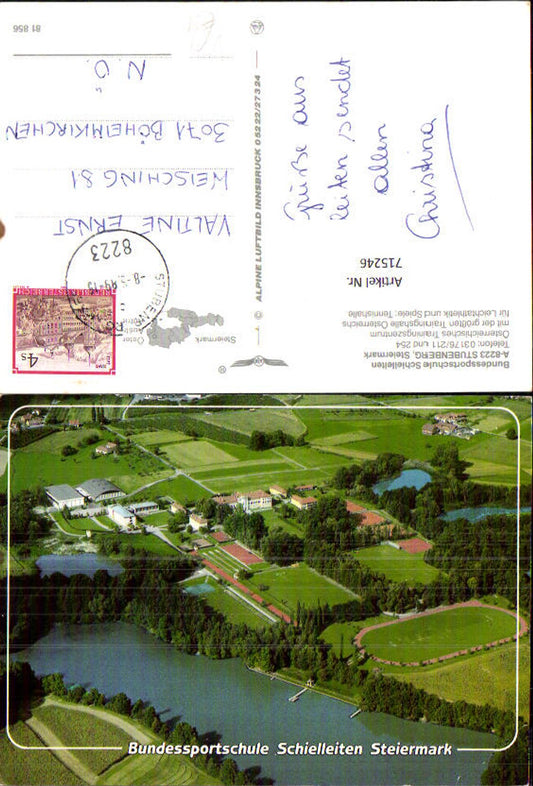 Bundessportschule Schielleiten
A-8223 STUBENBERG, Steiermark
Telefon: 03176/211 und 254
Österreichisches Trainingszentrum
mit der größten Trainingshalle Österreichs
für Leichtathletik und Spiele; Tennishalle
Steiermark
Österreich
8223
4 S
REPUBLIK ÖSTERREICH
VALTINE ERNST
WEISCHING 81
3071 BÖHEIMKIRCHEN
N.Ö.
81 856
ALPINE LUFTBILD INNSBRUCK 05222/27324
Grüße aus
leiten sendet
allen
Christina
Artikel Nr.
715246
Bundessportschule Schielleiten Steiermark